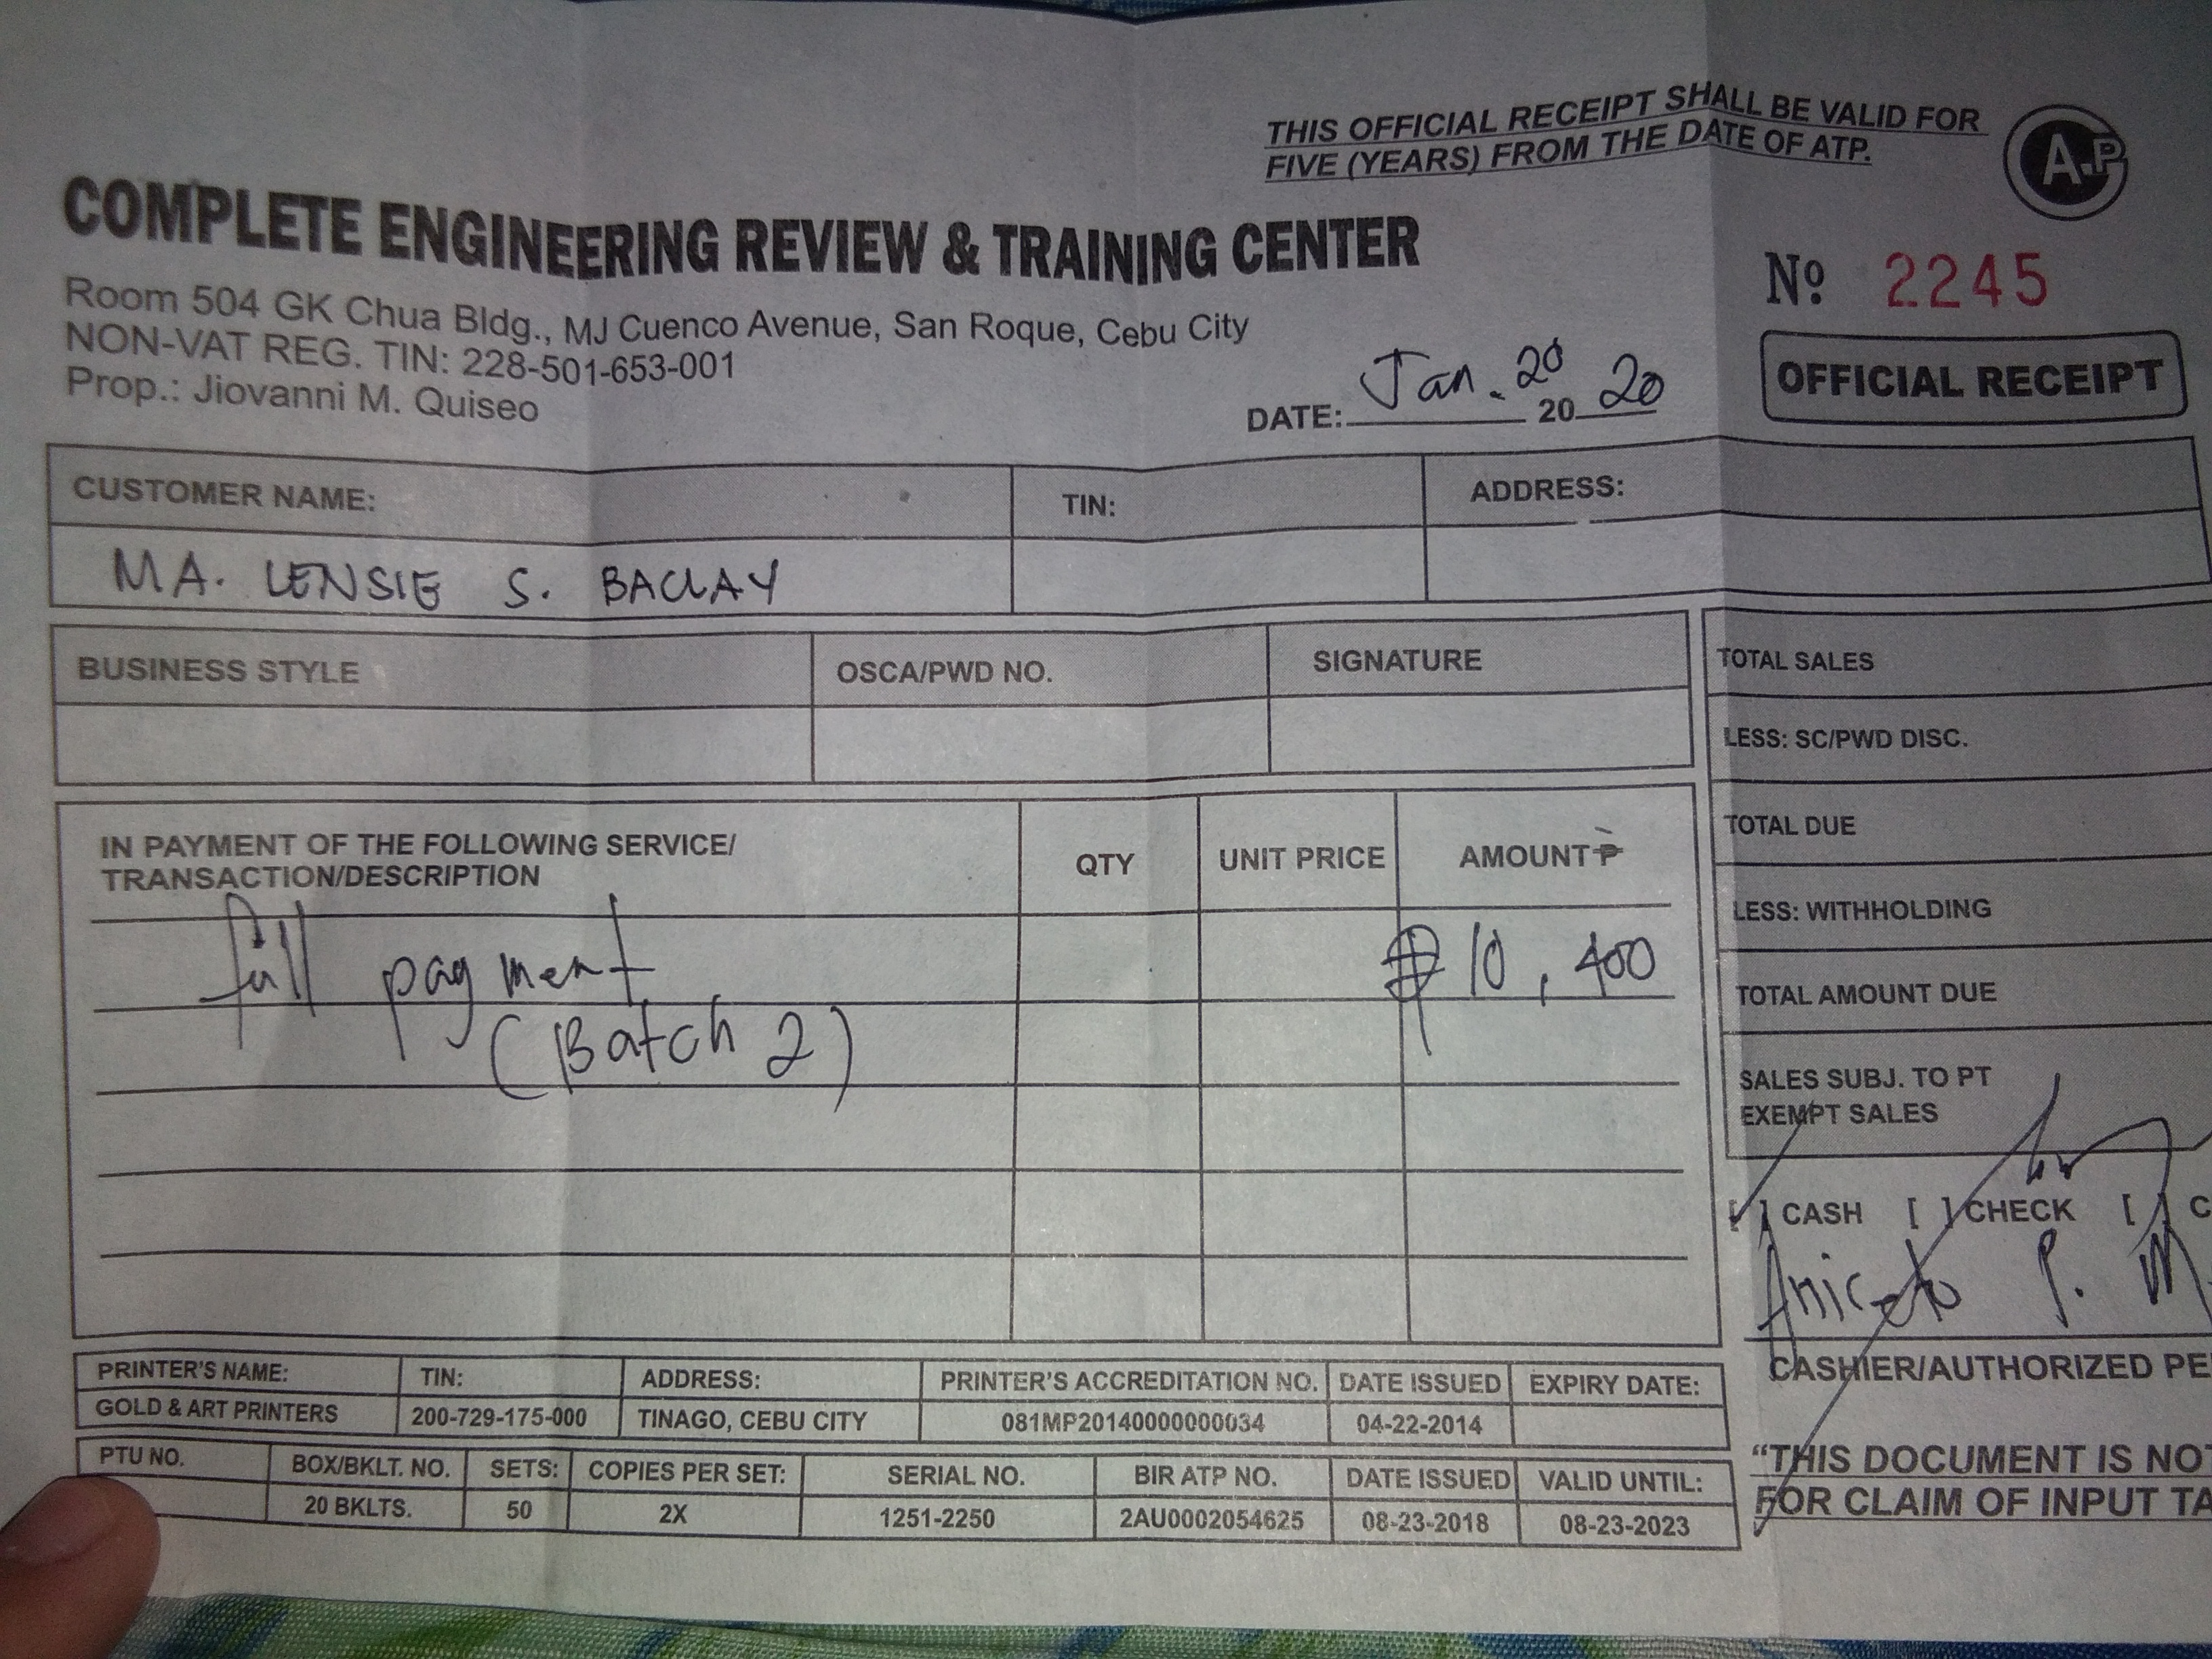 THIS OFFICIAL RECEIPT SHALL BE VALID FOR
FIVE (YEARS) FROM THE DATE OF ATP.
A-P
COMPLETE ENGINEERING REVIEW & TRAINING CENTER
Room 504 GK Chua Bldg., MJ Cuenco Avenue, San Roque, Cebu City
NON-VAT REG. TIN: 228-501-653-001
Prop.: Jiovanni M. Quiseo
Nº 2245
OFFICIAL RECEIPT
DATE: Jan. 20 20 20
CUSTOMER NAME: TIN: ADDRESS:
MA. LENSIE S. BACLAY
BUSINESS STYLE OSCA/PWD NO. SIGNATURE
IN PAYMENT OF THE FOLLOWING SERVICE/
TRANSACTION/DESCRIPTION QTY UNIT PRICE AMOUNT ₱
full payment ₱ 10,400
(Batch 2)
TOTAL SALES
LESS: SC/PWD DISC.
TOTAL DUE
LESS: WITHHOLDING
TOTAL AMOUNT DUE
SALES SUBJ. TO PT
EXEMPT SALES
[ ] CASH [ ] CHECK [ ] C
Aniceto P. M
CASHIER/AUTHORIZED PE
"THIS DOCUMENT IS NOT
FOR CLAIM OF INPUT TA
PRINTER'S NAME: TIN: ADDRESS: PRINTER'S ACCREDITATION NO. DATE ISSUED EXPIRY DATE:
GOLD & ART PRINTERS 200-729-175-000 TINAGO, CEBU CITY 081MP20140000000034 04-22-2014
PTU NO. BOX/BKLT. NO. SETS: COPIES PER SET: SERIAL NO. BIR ATP NO. DATE ISSUED VALID UNTIL:
20 BKLTS. 50 2X 1251-2250 2AU0002054625 08-23-2018 08-23-2023